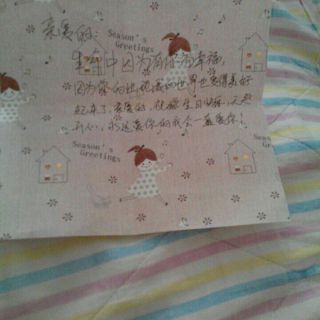 亲爱的:
Season's
Greetings
生命中因为有你而幸福,
因为爱的出现我的世界也变得美好
起来了,亲爱的,祝你生日快乐,天天
开心,永远爱你的我会一直爱你!
Season's
Greetings
Season's
Greetings